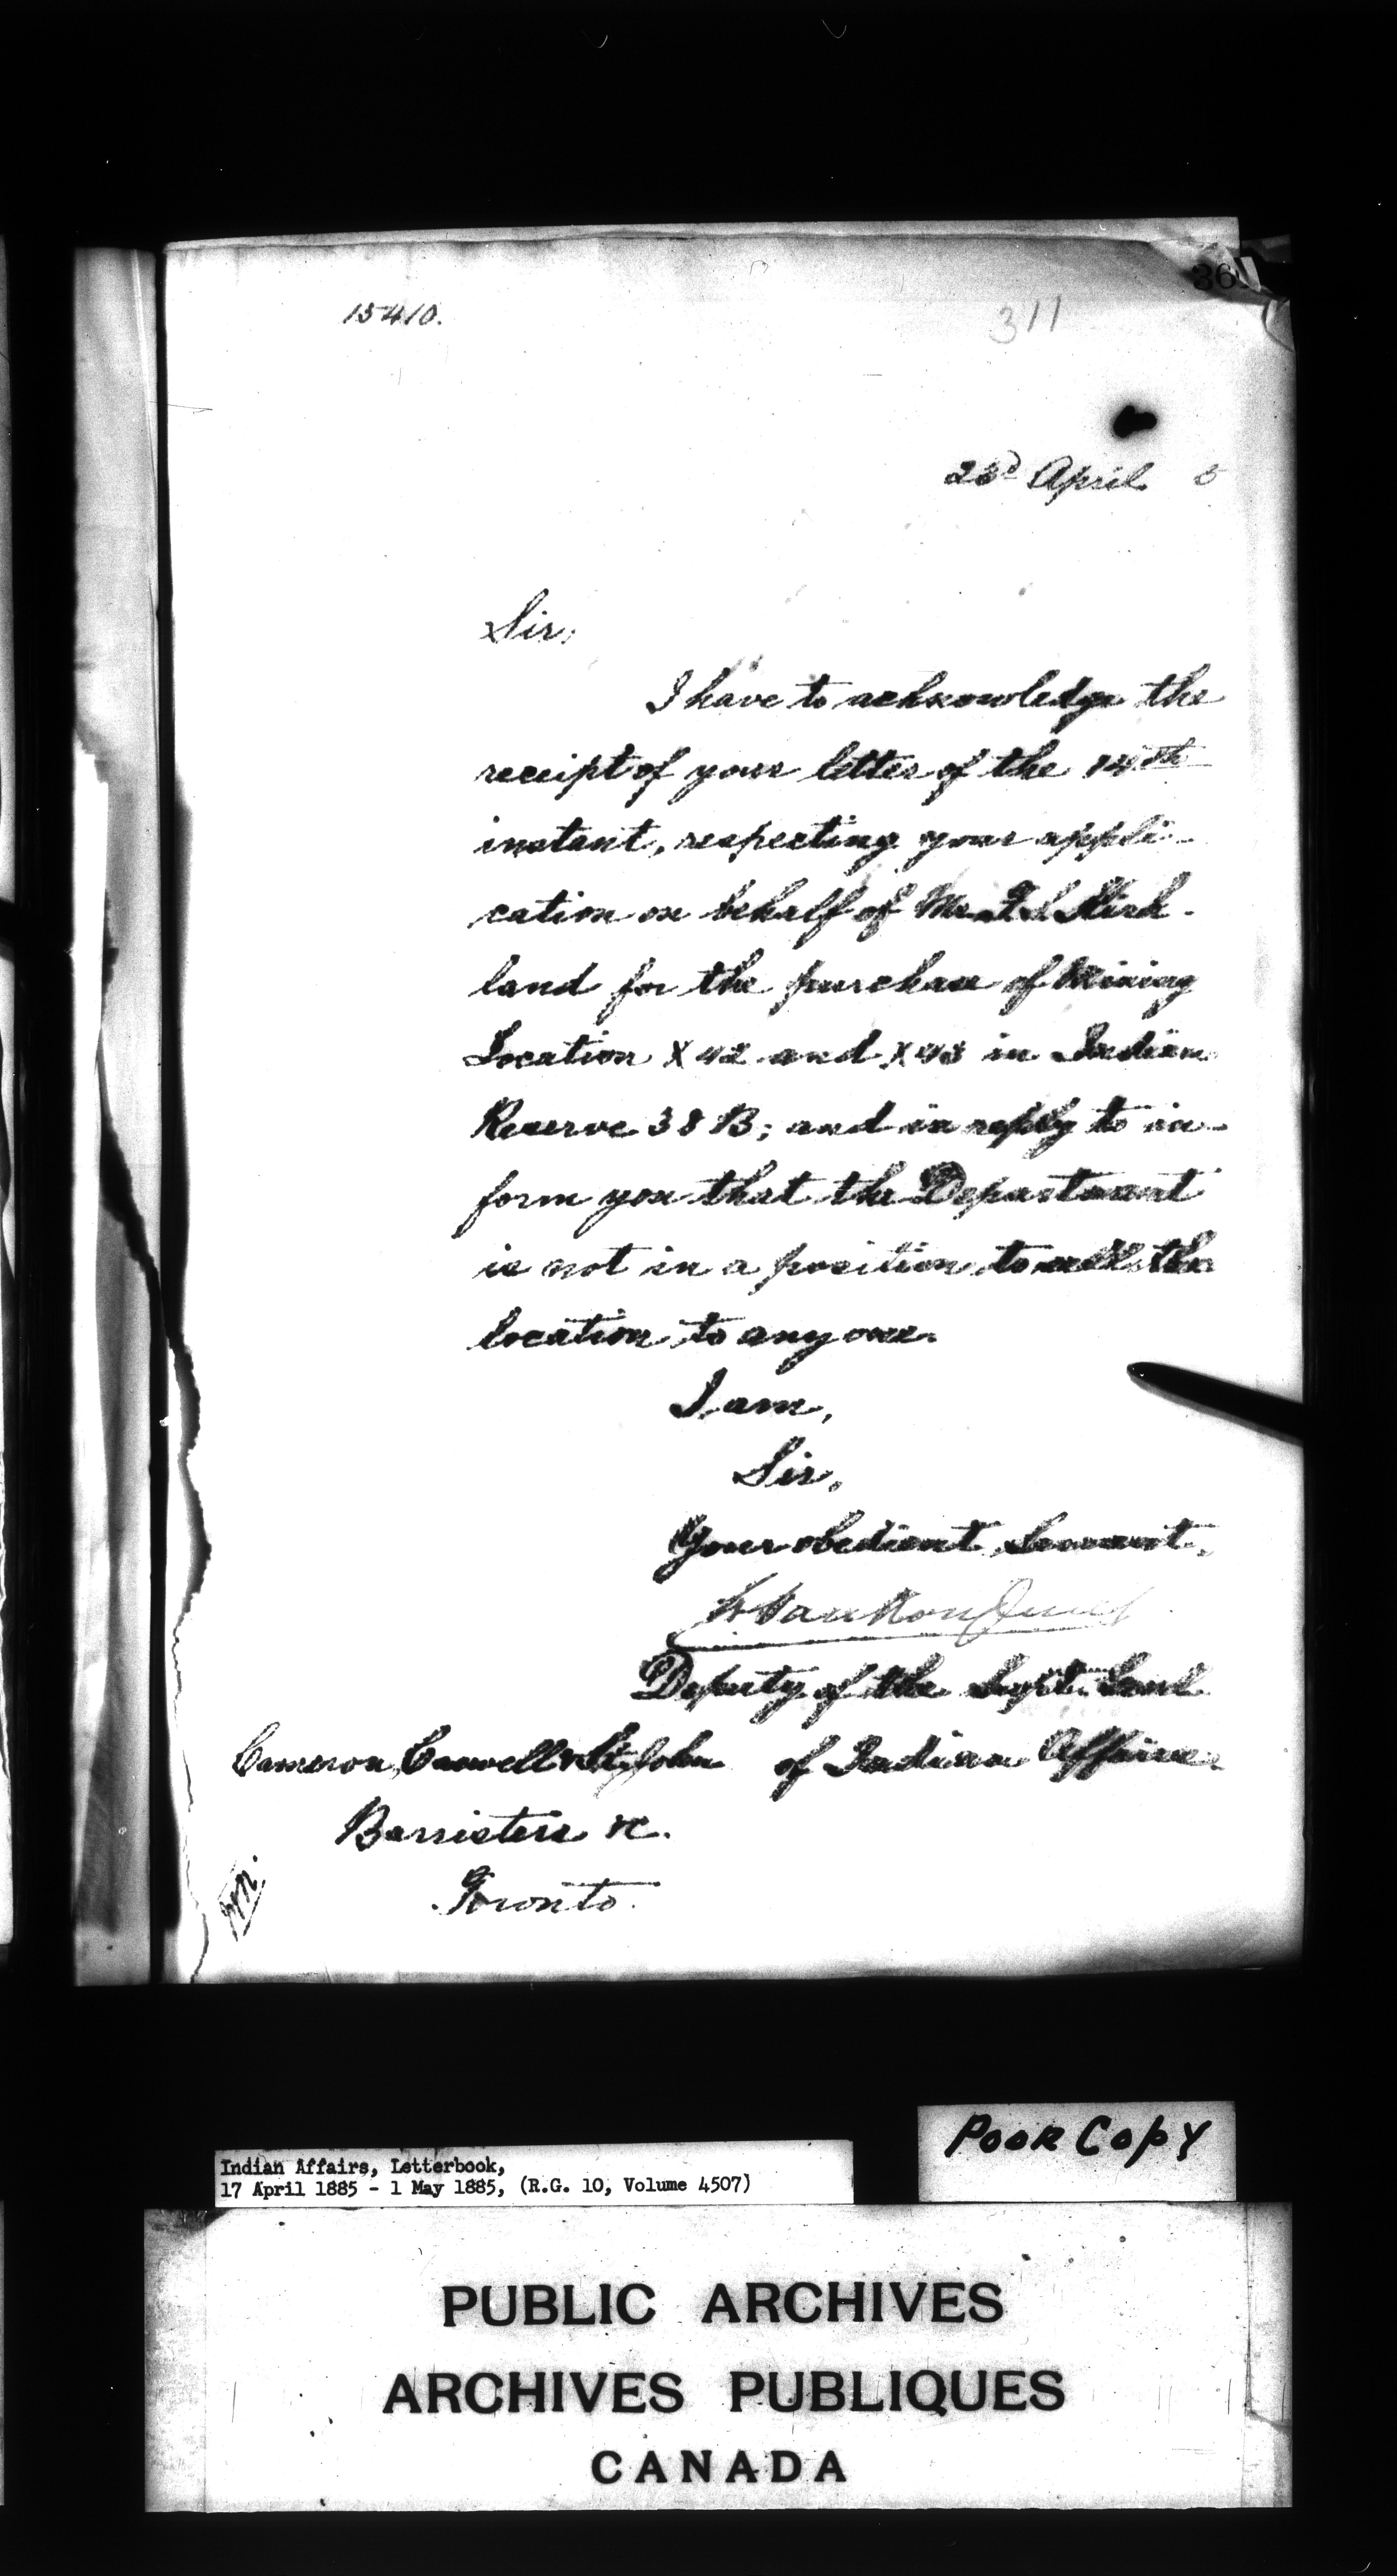 36
15410.
311
23d April 5
Sir,
I have to acknowledge the
receipt of your letter of the 14th
instant, respecting your appli-
cation on behalf of Mr. Kirk-
land for the purchase of Mining
Location X 42 and X 43 in Indian
Reserve 38 B; and in reply to in-
form you that the Department
is not in a position to sell the
location to any one.
I am,
Sir,
Your obedient Servant,
L Vankoughnet
Deputy of the Supt. Genl
Cameron, Caswell & St. John of Indian Affairs.
Barristers &c.
Toronto.
Poor Copy
Indian Affairs, Letterbook,
17 April 1885 - 1 May 1885, (R.G. 10, Volume 4507)
PUBLIC ARCHIVES
ARCHIVES PUBLIQUES
CANADA